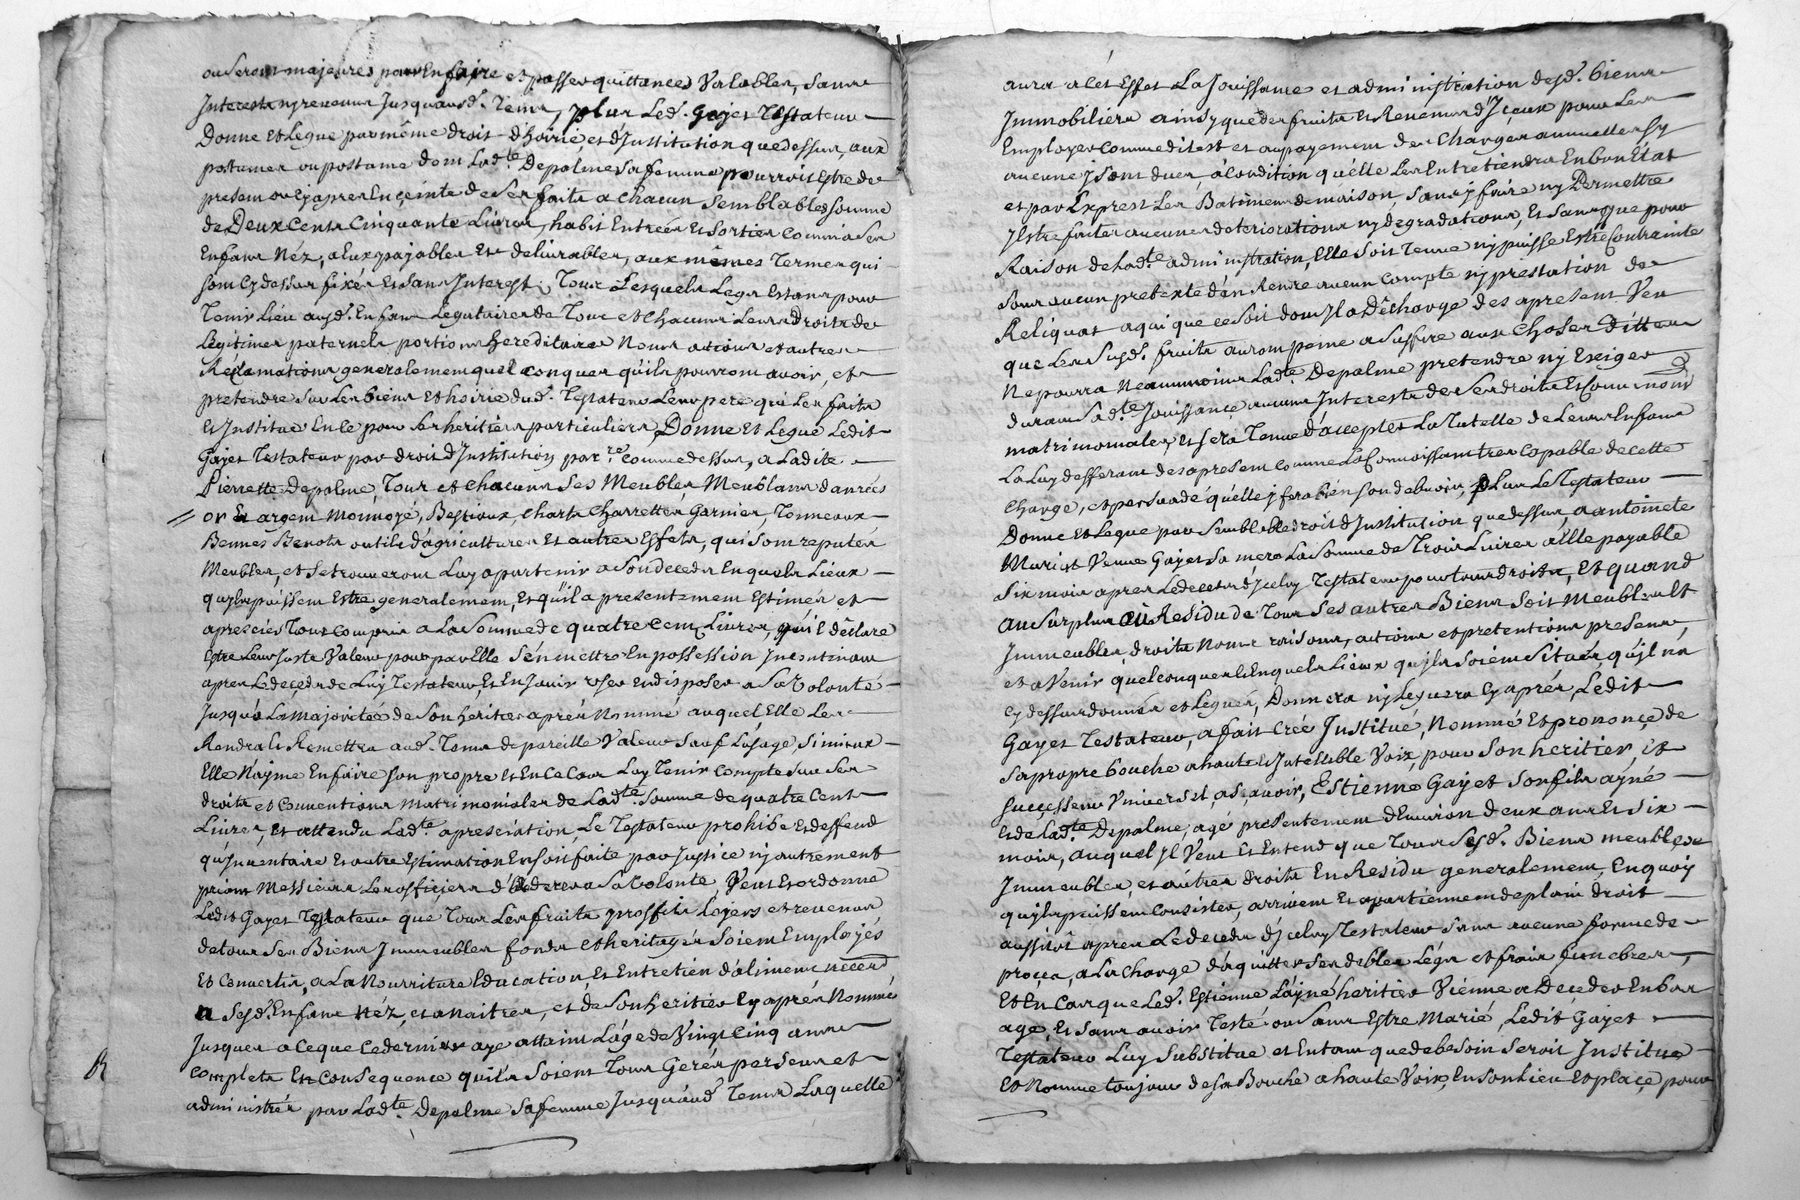 ou seront majeures pour en faire et passer quittances valables, sans
Interests ny revenus Jusquausd. Tems, plus Led. Gayet Testateur
Donne et Legue par même droit d'hoirie, et d'Institution que dessus, aux
postumes ou postume dont Ladte. Depalme Sa femme pourroit Estre de
present ou cy apres Enceinte de Ses faits a chacun Semblables Somme
de Deux Cents Cinquante Livres, habits Entrées et Sorties comme a Ses
Enfans Néz, a Eux payables Et delivrables, aux mêmes Termes qui
Sont cy dessus fixés Et Sans Interest, Tous Lesquels Legs Estans pour
Tenir Lieu ausd. Enfans Legataires de Tous et chacuns Leurs Droits de
Legitimes paternels portions hereditaires Noms actions et autres
Réclamations generalement quelconques qu'ils pourront avoir, et
pretendre Sur Les biens et hoirie dud. Testateur Leur pere qui Les faits
Et Institue En ce pour Ses heritiers particuliers Donne Et Legue Ledit
Gayet Testateur par droit d'Institution par.re comme dessus, a Ladite
Pierrette Depalme, Tous et chacuns Ses Meubles Meublans danrées
or Et argent Monnoyé, Bestiaux, Chars Charrettes Garnier, Tonneaux
Bennes Benots outils d'agricultures Et autres Effets, qui Sont reputés
Meubles, et Se trouveront Luy apartenir a Son deceds En quels Lieux
qu'ils puissent Estre generalement, Et qu'il a presentement Estimés et
apreciés Tout Compris a La Somme de quatre cent Livres, qu'il déclare
Estre Leur Juste Valeur pour par Elle S'en mettre En possession Incontinant
apres Le deceds de Luy Testateur, Et En Jouir User Et disposer a Sa Volonté
Jusqu'a La majoritée de Son heritier aprés Nommé auquel Elle Les
Rendra Et Remettra aud. Tems de pareille Valeur Sauf L'usage, Si mieux
Elle N'ayme En faire Son propre Et En ce Cas Luy Tenir Compte Sur Ses
droits et Conventions Matrimoniales de Ladte. Somme de quatre Cent
Livres, Et attendu Ladte. apreciation, Le Testateur prohibe Et deffend
qu'Inventaire Et autre Estimation En Soit faite par Justice ny autrement
priant Messieurs Les officiers d'aderer a Sa Volonté, Veut Et ordonne
Ledit Gayet Testateur que Tous Les fruits proffits Loyers et revenus
de tous Ses Biens Immeubles fonds et heritages Soient Employés
Et Convertis, a La Nourriture Education, Et Entretien d'aliments necerd.
a Sesd. Enfans Néz, et a Naitres, et de Son heritier Cy aprés Nommé
Jusques a ce que Le dernier aye attaint L'age de Vingt Cinq ans
complets En Consequence qu'ils Soient Tous Gerés perseus et
administrés par Ladte. Depalme Sa femme Jusqu'aud. Tems Laquelle
aura a cet Effet La Jouissance et administration desd. biens
Immobiliers ainsy que des fruits et Revenus d'Iceux pour Les
Employer comme dit est et au payement des Charges annuelles Sy
aucunes y Sont dues, a Condition qu'elle Les Entretiendra En bon Etat
et par Exprest Les Batimens de maison, Sans y faire ny Permettre
y Estre faites aucunes deteriorations ny degradations, Et Sans que pour
Raison de Ladte. administration, Elle Soit Tenue ny puisse Estre Contrainte
Sous aucun pretexte d'en Rendre aucun Compte ny prestation de
Reliquat a qui que ce Soit dont Il a Décharge des apresent Veu
que Les Susd. fruits auront peine a Suffire aux Choses Dittes
Ne pourra Neanmoins Ladte. Depalme pretendre ny Exiger
durant Sadte. Jouissance aucuns Interests de Ses droits Et Conventions
matrimoniales, et Sera Tenue d'accepter La Tutelle de Leurs Enfans
La Luy defferant des apresent comme La Connoissant tres capable de cette
Charge, et persuadé qu'elle y fera bien Son debvoir, plus Le Testateur
Donne Et Legue par Semblable droit d'Institution que dessus, a antoinete
Mariet Veuve Gayet Sa mere La Somme de Trois Livres a Elle payable
Six mois apres Le deceds d'Iceluy Testateur pour tous droits, Et quand
au Surplus au Residu de Tous Ses autres Biens Soit Meubles et
Immeubles, droits Noms raisons, actions et pretentions presens,
et a Venir quelconques En quels Lieux qu'ils Soient Situés, qu'il n'a
cy dessus donnés et Legués, Donnera ny Leguera Cy aprés, Ledit
Gayet Testateur, a fait Créé Institué, Nommé Et prononçé de
Sa propre bouche a haute Et Intelible Voix, pour Son heritier, et
Successeur Universel, a Sçavoir, Estienne Gayet Son fils ayné
Et de Ladte. Depalme, agé presentement d'Environ deux ans Et Six
mois, auquel Il Veut Et Entend que Tous Sesd. Biens meubles et
Immeubles, et autres droits En Residu generalement, En quoy
qu'ils puissent Consister, arrivent Et apartiennent de plain droit
aussitôt apres Le deceds d'Iceluy Testateur Sans aucune forme de
proçes, a La charge d'aquitter Ses debtes Légs et frais funebres,
Et En Cas que Led. Estienne L'ayné heritier Vienne a Deceder En bas
age, Et Sans avoir Testé ou Sans Estre Marié, Ledit Gayet
Testateur Luy Substitue et En tant que de besoin Seroit Institue
Et Nomme toujours de Sa Bouche a haute Voix, En Son Lieu Et plaçe pour